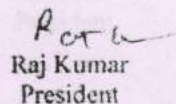 Raj Kumar
President